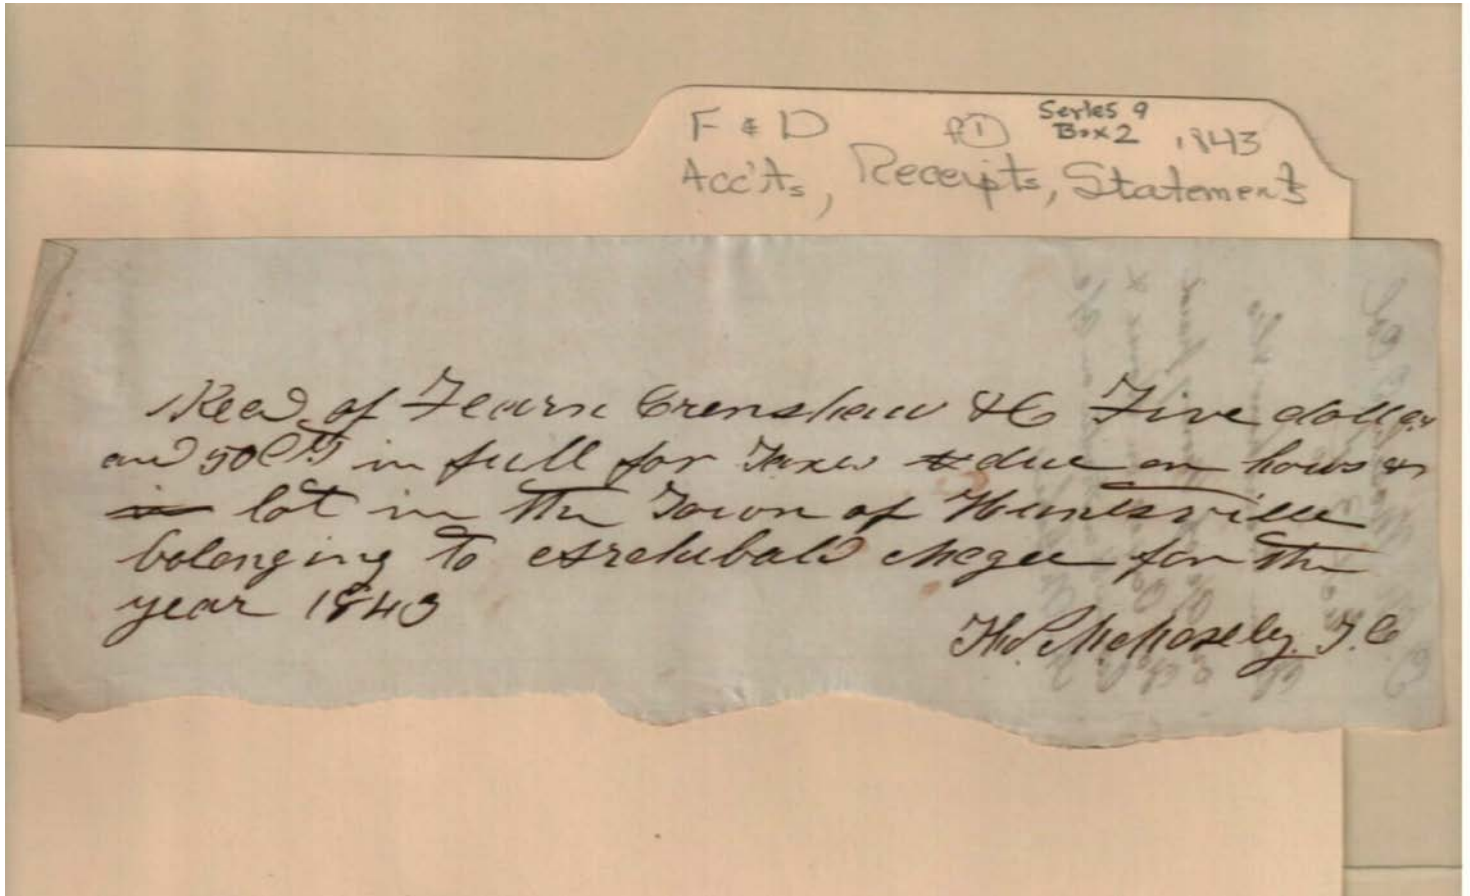 F & D
Series 9
Box 2
1843
Acc'ts, Receipts, Statements
Recd of Fearn Crenshaw & C Five dollars
and 50 Cts in full for Taxes due on hows &
lot in the Town of Huntsville
belonging to Archibald Megee for the
year 1843
T. C